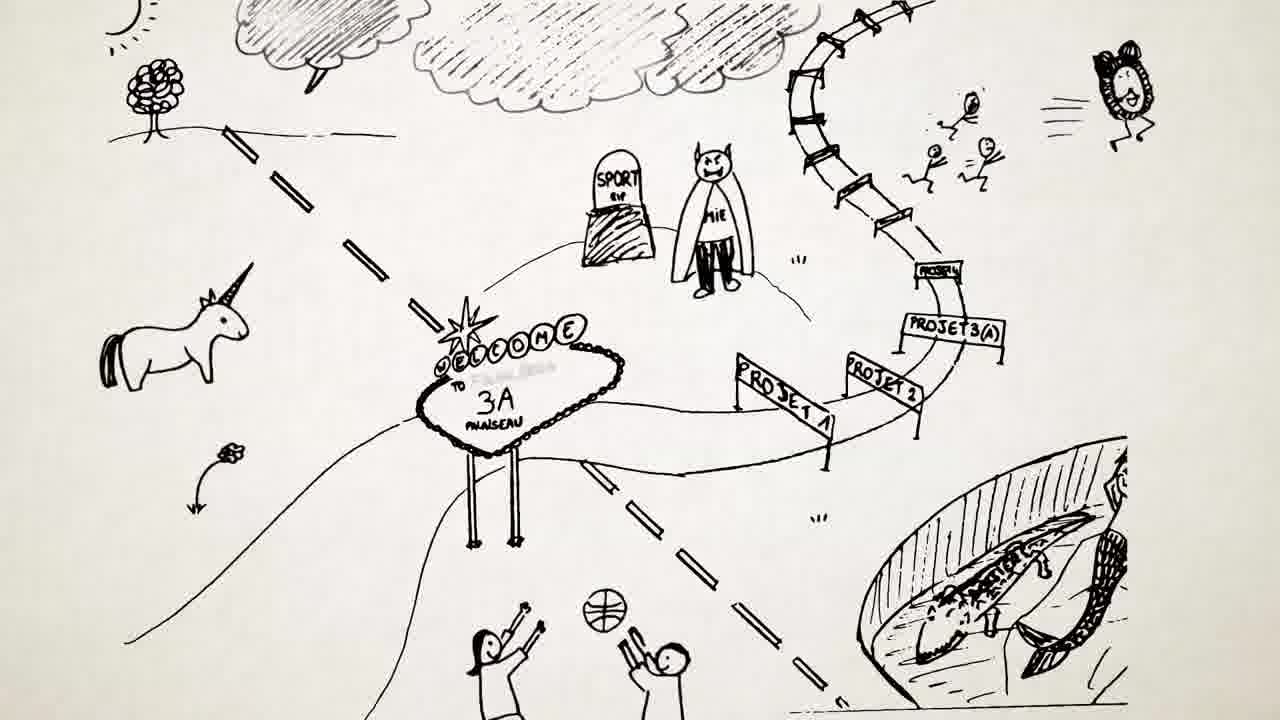 SPORT
RIP
MIE
WELCOME
TO
3A
PALAISEAU
PROJET 1
PROJET 2
PROJET 3(A)